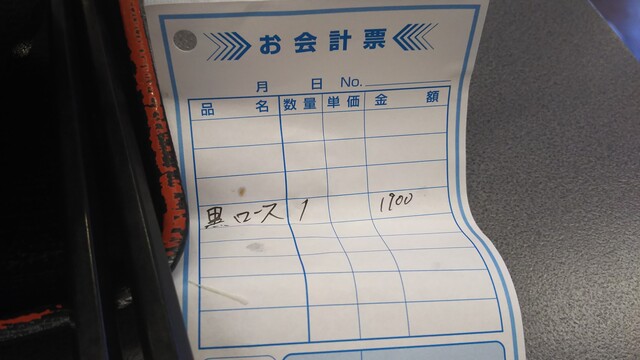 お会計票
月 日 No.
品名 数量 単価 金額
黒ロース 1 1900